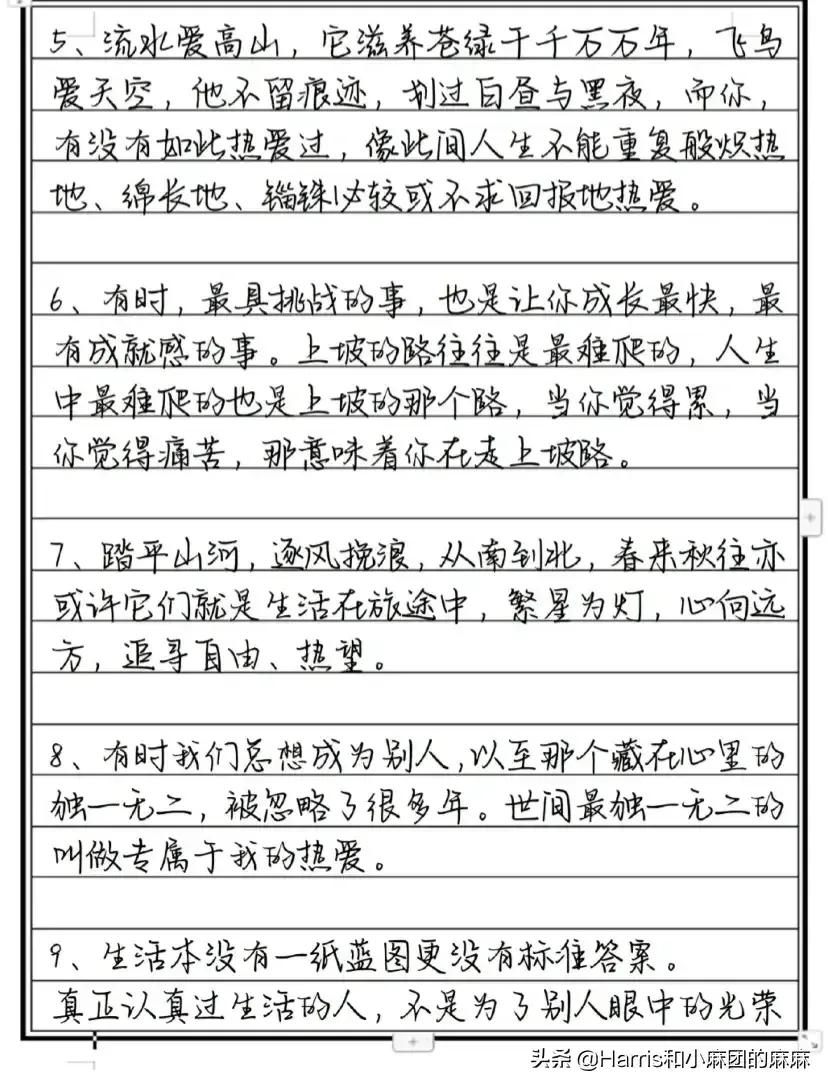 5、流水爱高山，它滋养苍绿千千万万年，飞鸟
爱天空，他不留痕迹，划过白昼与黑夜，而你，
有没有如此热爱过，像此间人生不能重复般炽热
地、绵长地、锱铢必较或不求回报地热爱。
6、有时，最具挑战的事，也是让你成长最快，最
有成就感的事。上坡的路往往是最难爬的，人生
中最难爬的也是上坡的那个路，当你觉得累，当
你觉得痛苦，那意味着你在走上坡路。
7、踏平山河，逐风挽浪，从南到北，春来秋往亦
或许它们就是生活在旅途中，繁星为灯，心向远
方，追寻自由、热望。
8、有时我们总想成为别人，以至那个藏在心里的
独一无二，被忽略了很多年。世间最独一无二的
叫做专属于我的热爱。
9、生活本没有一纸蓝图更没有标准答案。
真正认真过生活的人，不是为了别人眼中的光荣
头条 @Harris和小麻团的麻麻